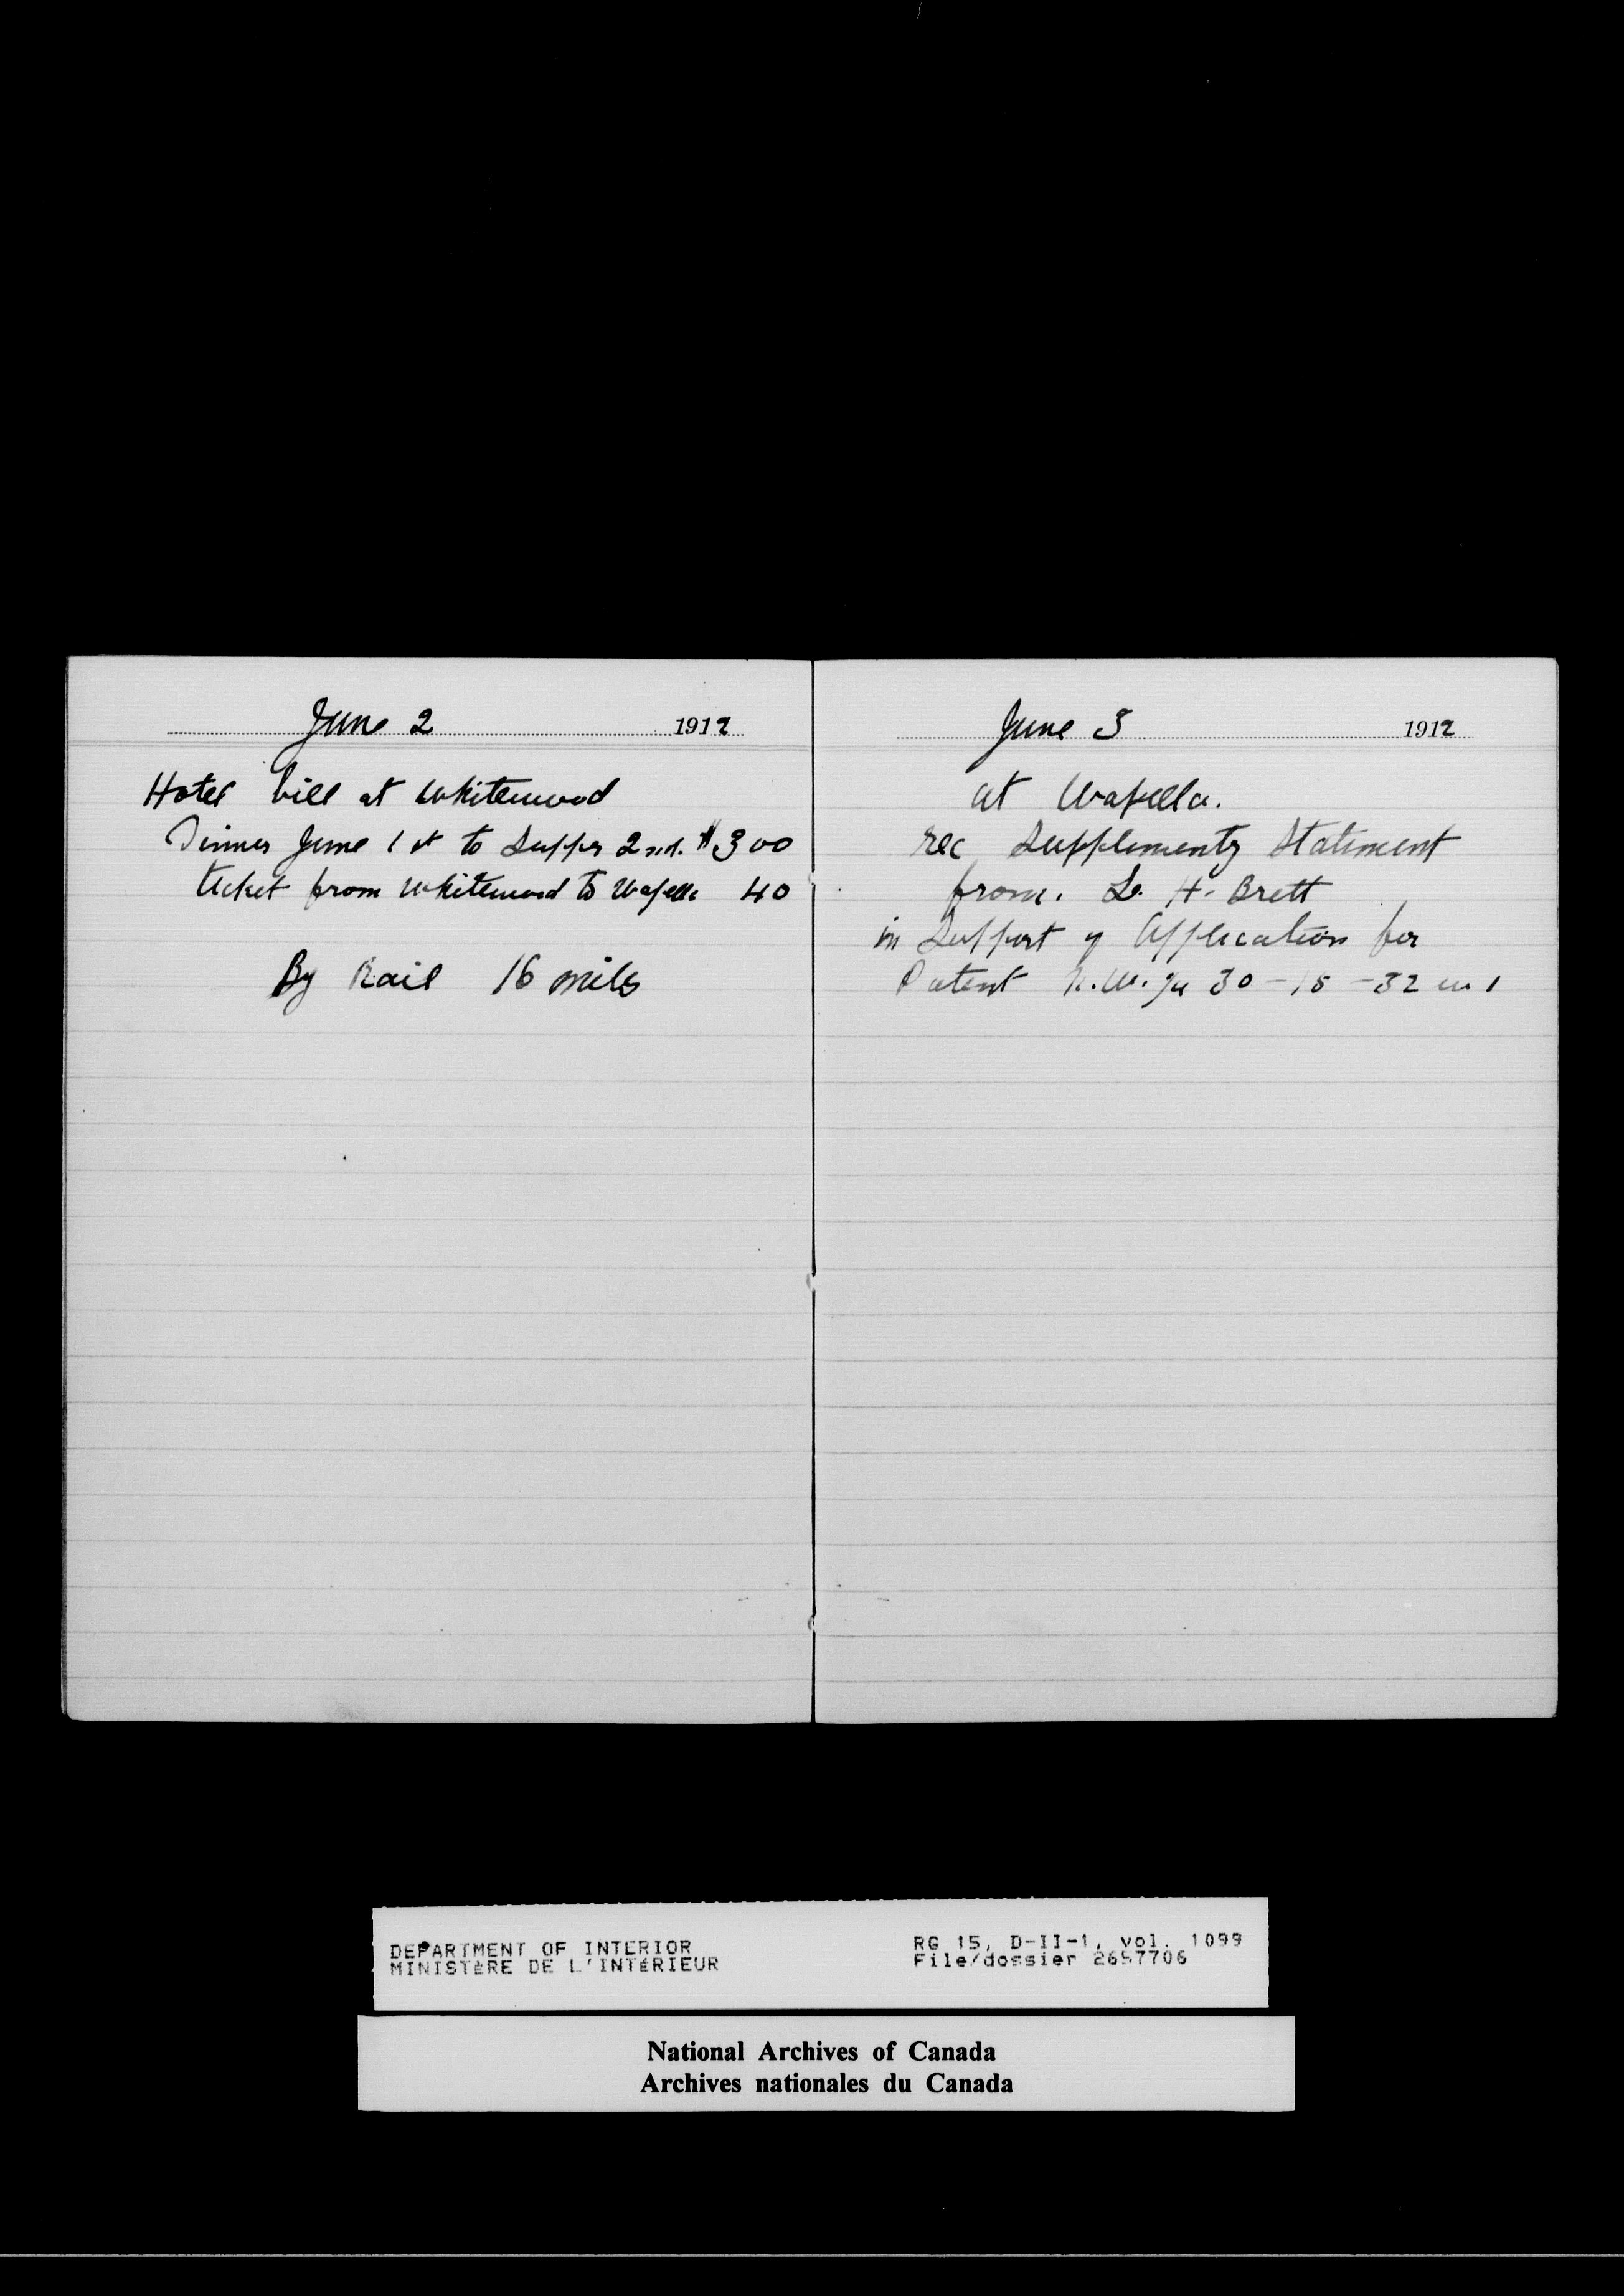 June 2 1912
Hotel bill at Whitewood
Dinner June 1st to Supper 2nd. $3 00
ticket from Whitewood to Wapella 40
By Rail 16 miles
June 3 1912
at Wapella.
rec Supplementy Statement
from. L. H. Brett
in Support of Application for
Patent N.W. 1/4 30-15-32 W. 1
DEPARTMENT OF INTERIOR
MINISTÈRE DE L'INTÉRIEUR
RG 15, D-II-1, vol. 1099
File/dossier 2657706
National Archives of Canada
Archives nationales du Canada